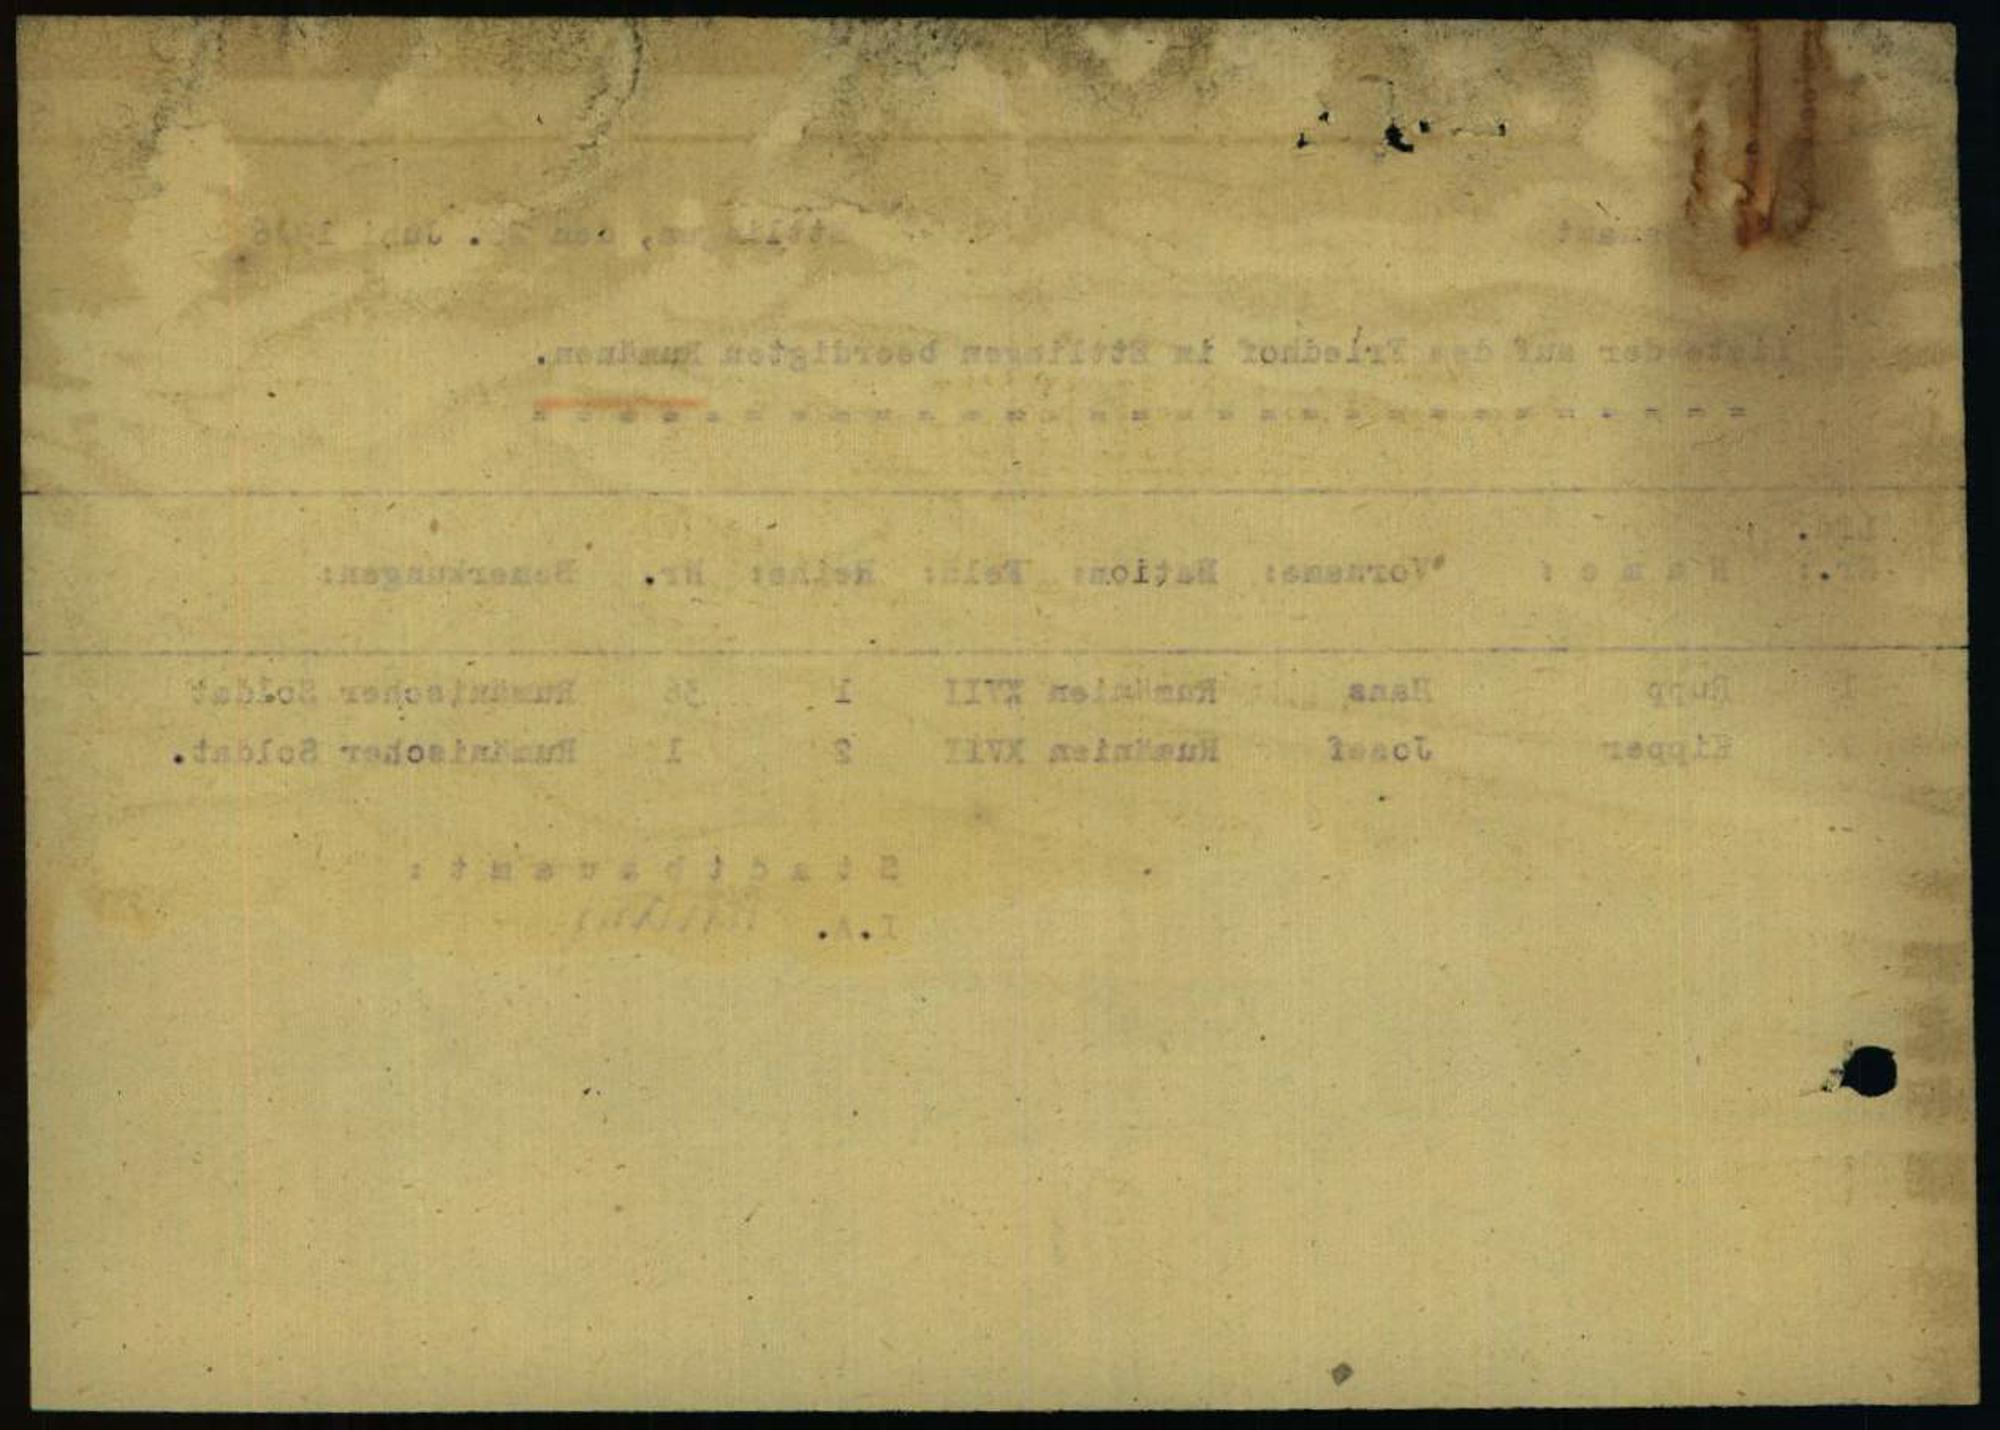 Ettlingen, den Juni 1946
Liste der auf dem Friedhof in Ettlingen beerdigten Rumänen.
= = = = = = = = = = = = = = = = = = = = = = = = = = = = =
Lfd.
Nr.: N a m e : Vorname: Nation: Feld: Reihe: Nr. Bemerkungen:
1 Rupp Hans Rumänien XVII 1 36 Rumänischer Soldat
Kipper Josef Rumänien XVII 2 1 Rumänischer Soldat.
S t a d t b a u a m t :
I.A.